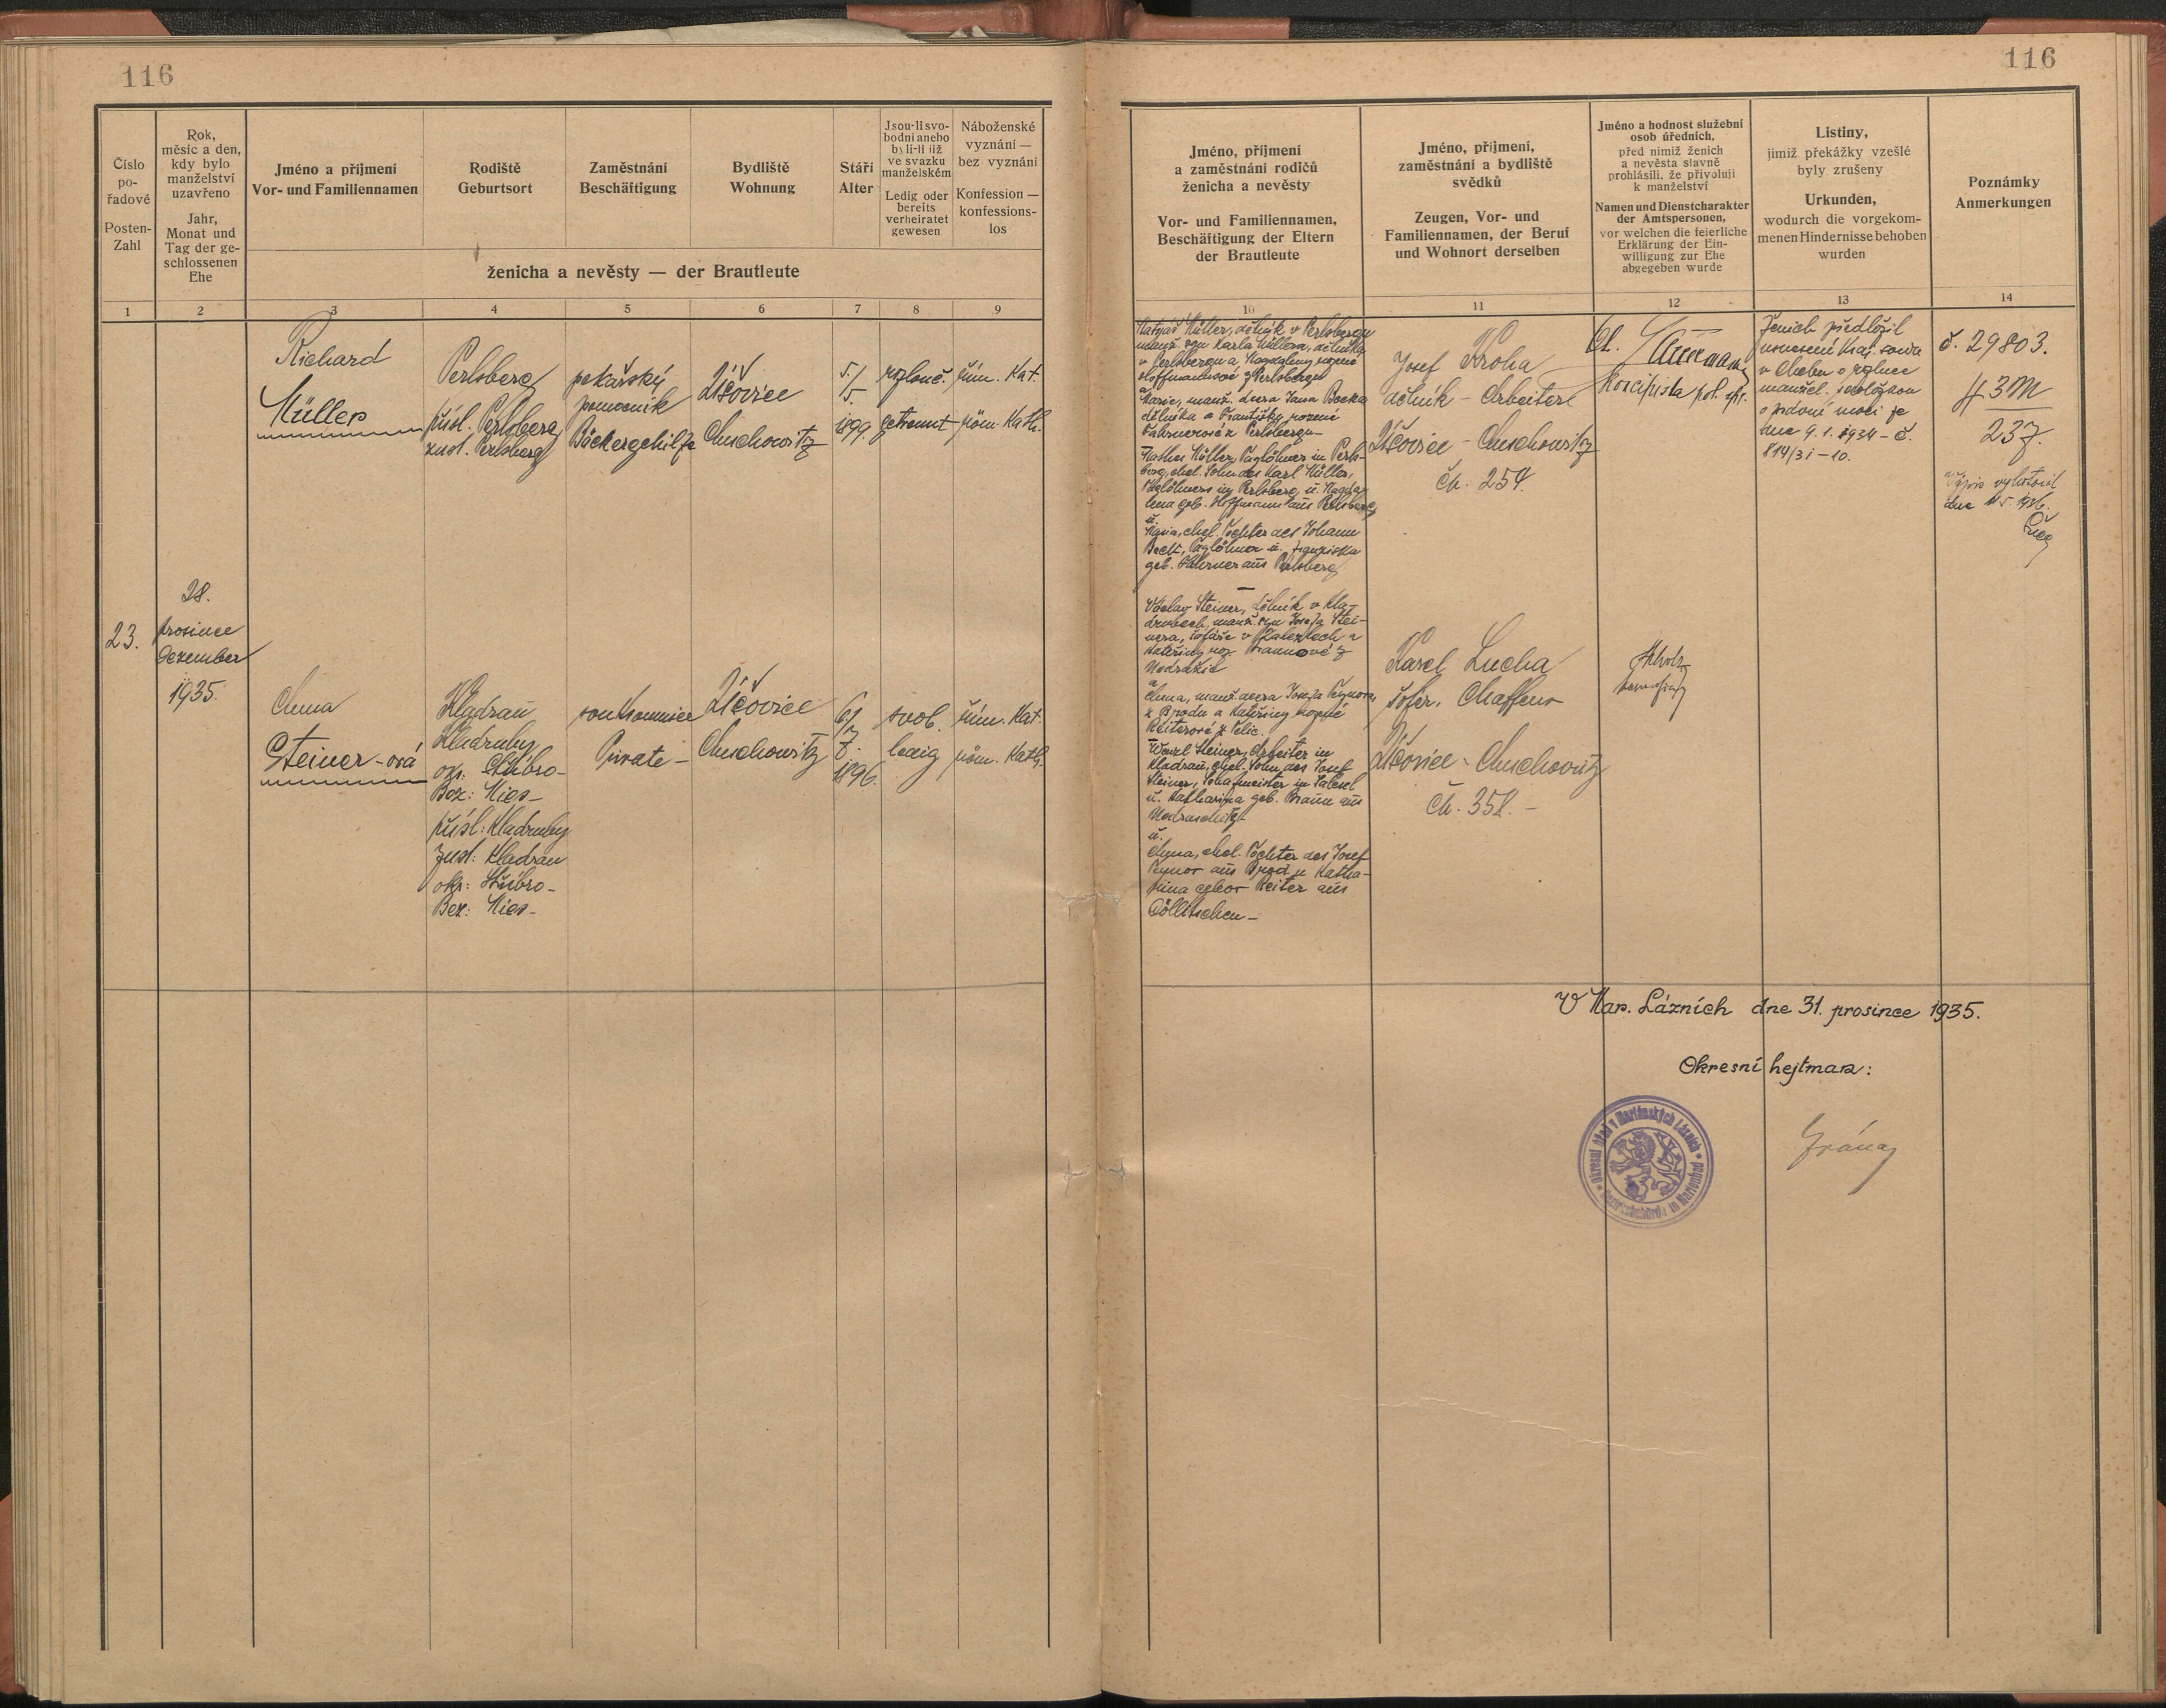 116
Číslo
po-
řadové
Posten-
Zahl
Rok,
měsíc a den,
kdy bylo
manželství
uzavřeno
Jahr,
Monat und
Tag der ge-
schlossenen
Ehe
Jméno a příjmení
Vor- und Familiennamen
Rodiště
Geburtsort
Zaměstnání
Beschäftigung
Bydliště
Wohnung
Stáří
Alter
Jsou-li svo-
bodni anebo
byli-li již
ve svazku
manželském
Ledig oder
bereits
verheiratet
gewesen
Náboženské
vyznání —
bez vyznání
Konfession —
konfessions-
los
ženicha a nevěsty — der Brautleute
1 2 3 4 5 6 7 8 9
23.
28.
prosince
Dezember
1935.
Richard
Müller
Perlsberg
přísl. Perlsberg
zust. Perlsberg
pekařský
pomocník
Bäckergehilfe
Úšovice
Auschowitz
5./
5.
1899.
rozlouč.
getrennt
řím. kat.
röm. kath.
Anna
Steiner-ová
Kladrau
Kladruby
okr: Stříbro-
Bez: Mies-
přísl: Kladruby
zust: Kladrau
okr: Stříbro-
Bez: Mies-
soukromnice
Private-
Úšovice
Auschowitz
6./
7.
1896.
svob.
ledig
řím. kat.
röm. kath.
116
Jméno, příjmení
a zaměstnání rodičů
ženicha a nevěsty
Vor- und Familiennamen,
Beschäftigung der Eltern
der Brautleute
Jméno, příjmení,
zaměstnání a bydliště
svědků
Zeugen, Vor- und
Familiennamen, der Beruf
und Wohnort derselben
Jméno a hodnost služební
osob úředních,
před nimiž ženich
a nevěsta slavně
prohlásili, že přivolují
k manželství
Namen und Dienstcharakter
der Amtspersonen,
vor welchen die feierliche
Erklärung der Ein-
willigung zur Ehe
abgegeben wurde
Listiny,
jimiž překážky vzešlé
byly zrušeny
Urkunden,
wodurch die vorgekom-
menen Hindernisse behoben
wurden
Poznámky
Anmerkungen
10 11 12 13 14
Matyáš Müller, dělník v Perlsbergu
manž. syn Karla Müllera, dělníka
v Perlsbergu a Magdaleny rozené
Hoffmannové z Perlsbergu
a
Marie, manž. dcera Jana Becka
dělníka a Františky rozené
z Perlsbergu-
Mathes Müller, Taglöhner in Perls-
berg, ehel. Sohn des Karl Müller,
Taglöhners in Perlsberg u. Magda-
lena geb. Hoffmann aus Perlsberg
u.
Maria, ehel. Tochter des Johann
Beck, Taglöhner u. Franziska
geb. aus Perlsberg
Václav Steiner, dělník v Kla-
drubech, manž. syn Josefa Stei-
nera, v a
Kateřiny roz. Braunové z
a
Anna, manž. dcera Josefa
z Brodu a Kateřiny rozené
Reiterové z
Wenzl Steiner, Arbeiter in
Kladrau, ehel. Sohn des Josef
Steiner, Schafmeister in
u. Katharina geb. Braun aus
u.
Anna, ehel. Tochter des Josef
aus Brod u. Katha-
rina gebor Reiter aus
Josef Kroha
dělník - Arbeiter
Úšovice - Auschowitz
čp. 254.
Karel Lucha
šofér. Chaffeur
Úšovice - Auschowitz
čp. 358.-
koncipista pol. spr.
Ženich předložil
usnesení Kraj. soudu
v Chebu o rozluce
manžel. s doložkou
o právní moci ze
dne 9. 1. 1934 - č.
814/31-10.
č. 29803.
43M
237.
Výpis vyhotovil
dne
V Mar. Lázních dne 31. prosince 1935.
Okresní hejtman:
Okresní úřad v Mariánských Lázních
Bezirksbehörde in Marienbad